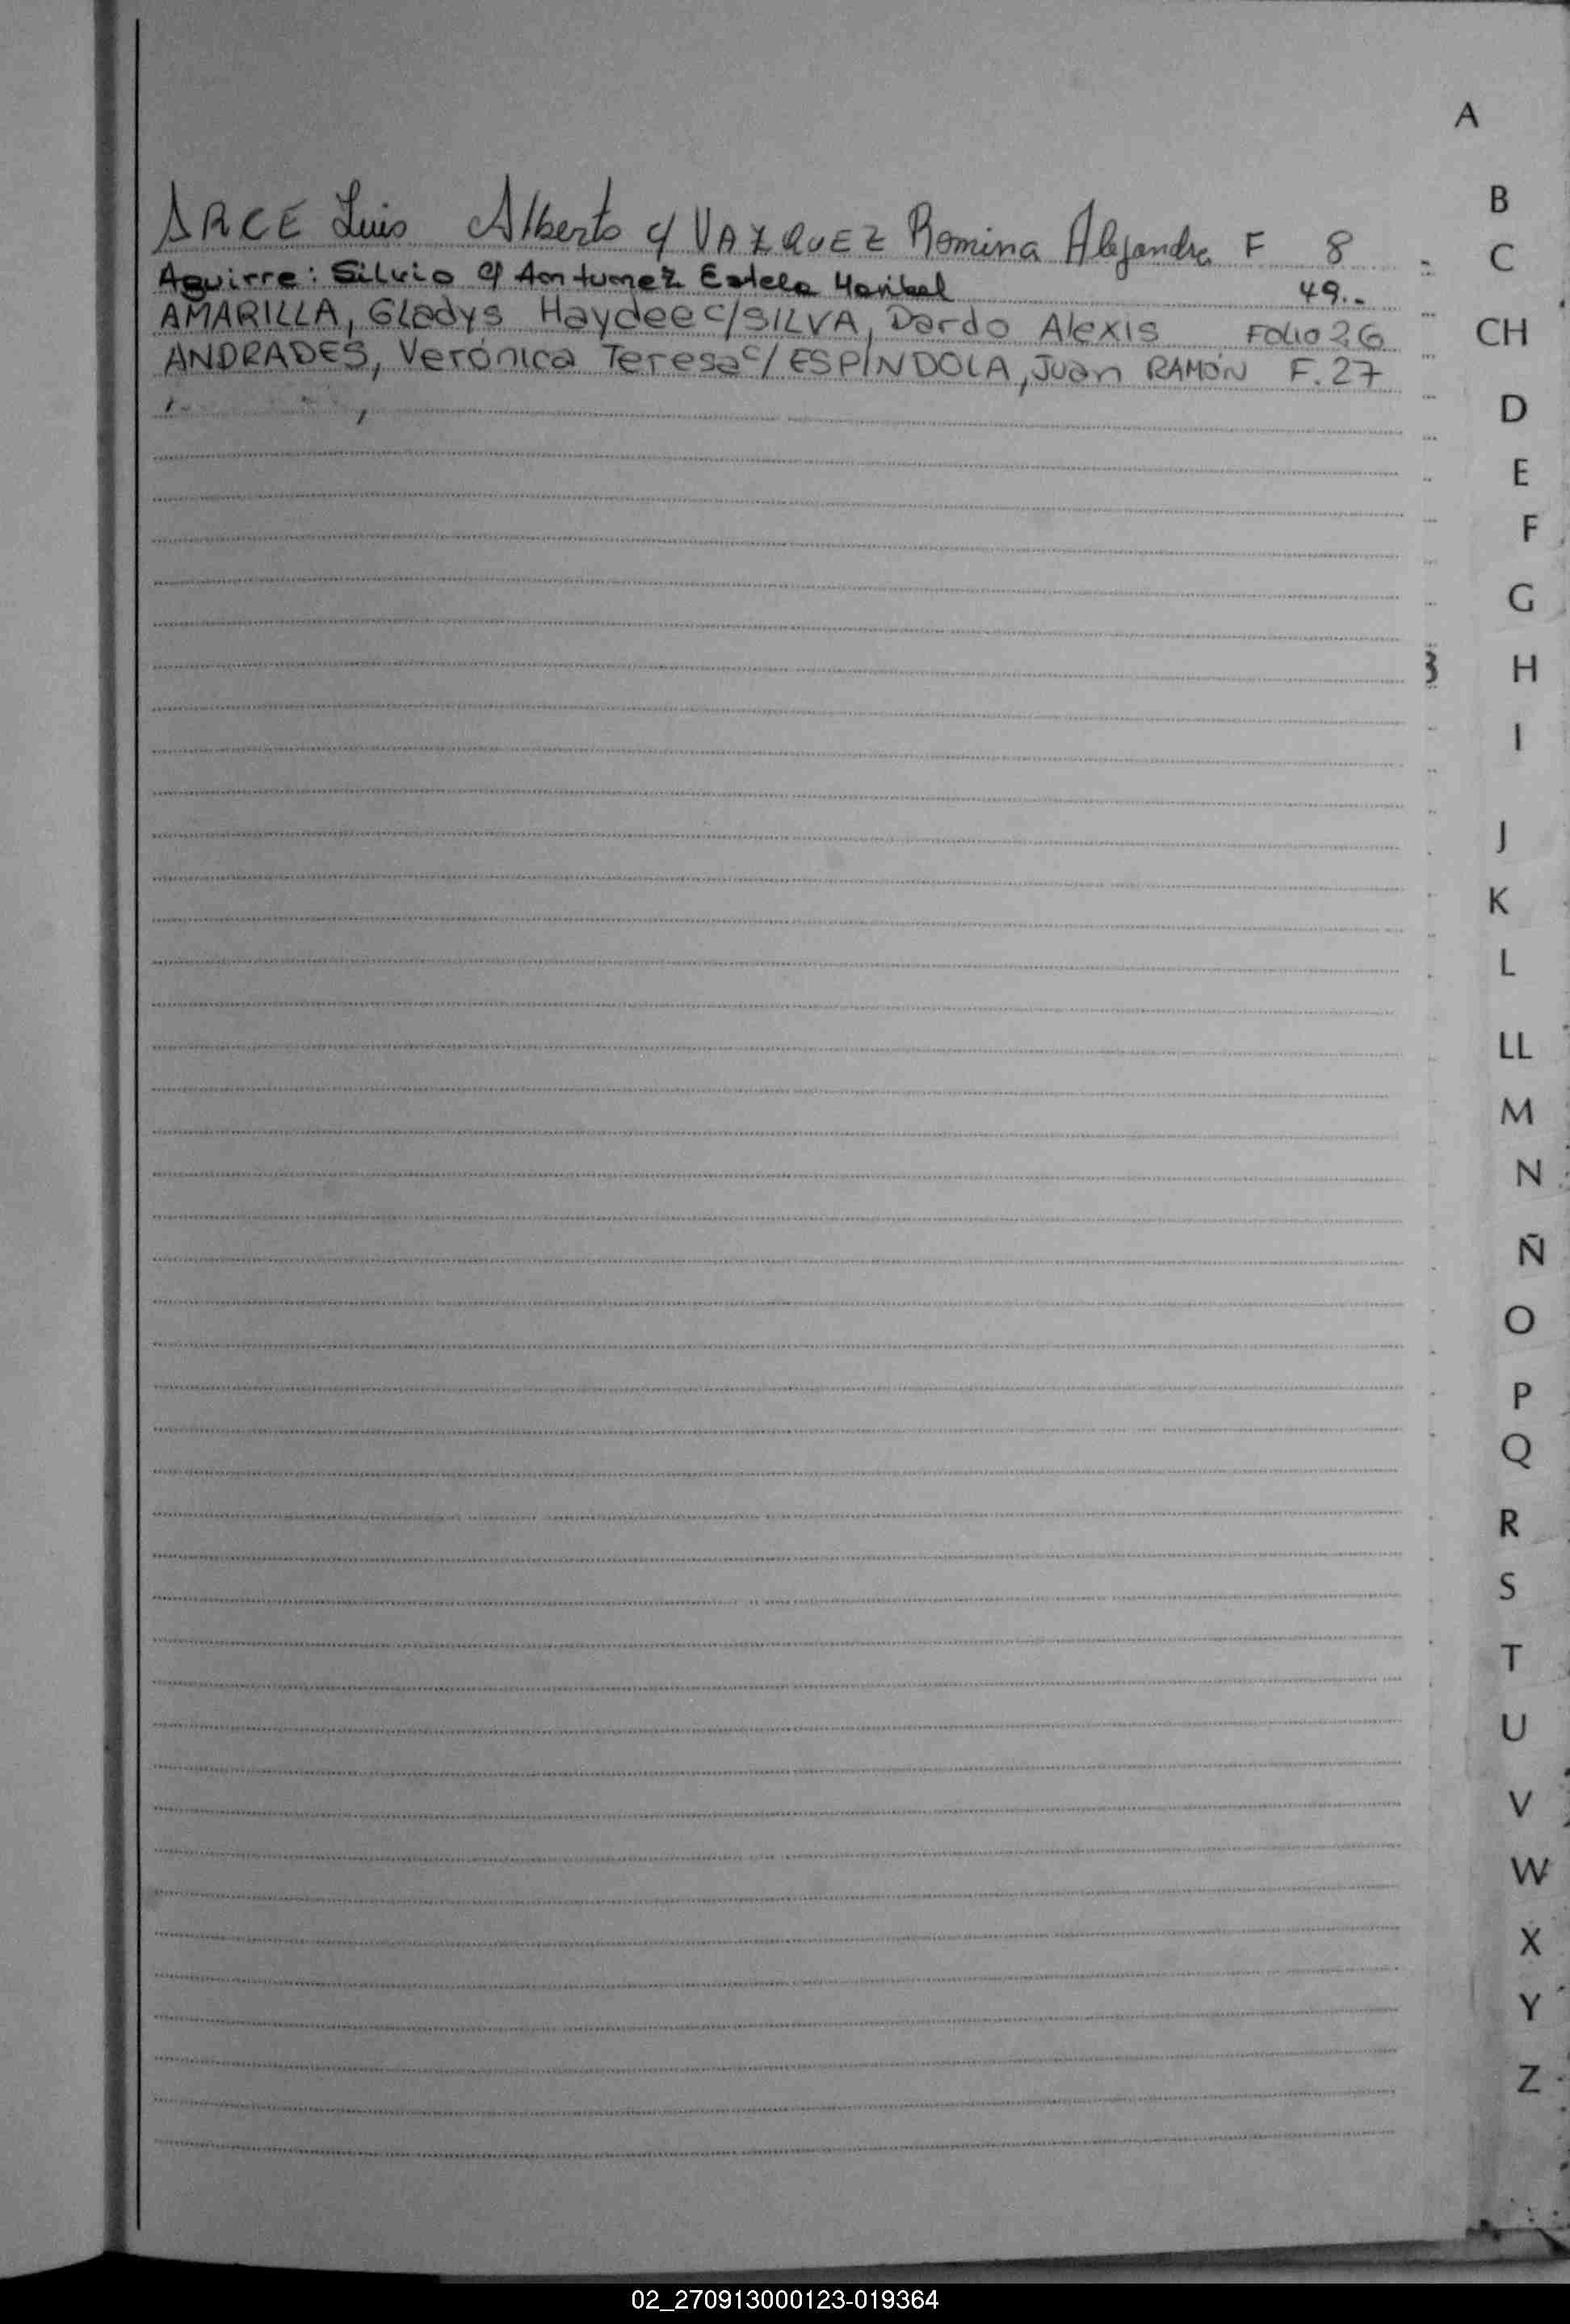 A
ARCE Luis Alberto c/ VAZQUEZ Romina Alejandra F 8
Aguirre: Silvio c/ Antunez Estela Maribel 49..
AMARILLA, Gladys Haydee c/ SILVA, Dardo Alexis FOLIO 26
ANDRADES, Verónica Teresa c/ ESPÍNDOLA, Juan RAMÓN F. 27
B
C
CH
D
E
F
G
H
I
J
K
L
LL
M
N
Ñ
O
P
Q
R
S
T
U
V
W
X
Y
Z
02_270913000123-019364